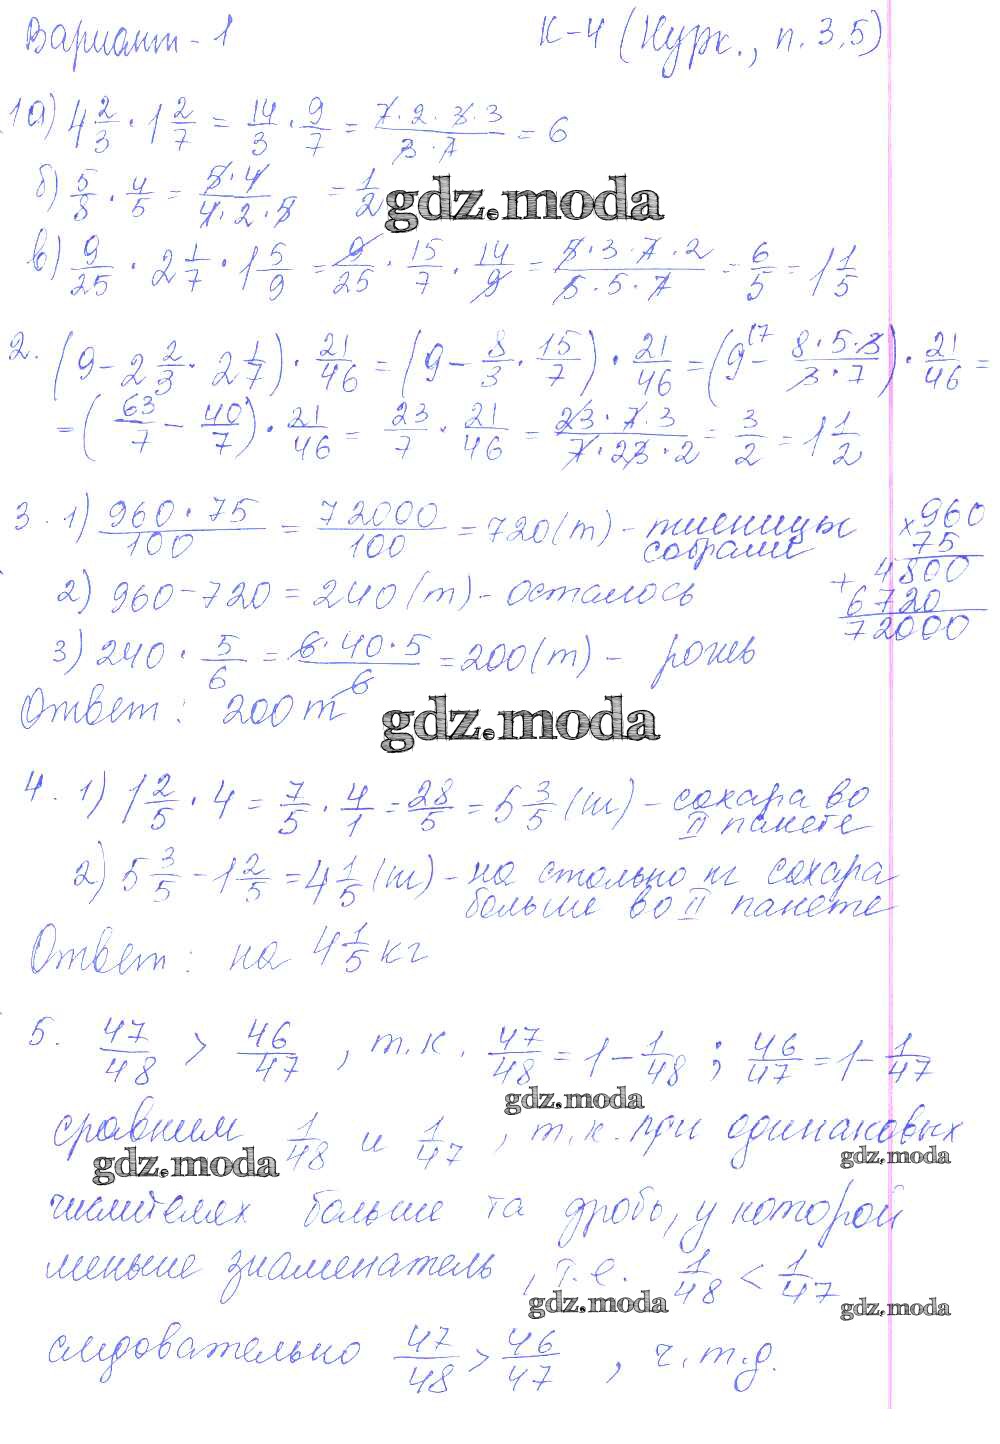 Вариант-1 К-4 (Курк., п. 3,5)
1а) 4 2/3 · 1 2/7 = 14/3 · 9/7 = (7·2·3·3)/(3·7) = 6
б) 5/8 · 4/5 = (5·4)/(4·2·5) = 1/2
gdz.moda
в) 9/25 · 2 1/7 · 1 5/9 = 9/25 · 15/7 · 14/9 = (5·3·7·2)/(5·5·7) = 6/5 = 1 1/5
2. (9 - 2 2/3 · 2 1/7) · 21/46 = (9 - 8/3 · 15/7) · 21/46 = (9 (7 - (8·5·3)/(3·7)) · 21/46 =
= (63/7 - 40/7) · 21/46 = 23/7 · 21/46 = (23·7·3)/(7·23·2) = 3/2 = 1 1/2
3. 1) (960·75)/100 = 72000/100 = 720 (т) - пшеницы
собрали
× 960
75
+ 4800
6720
72000
2) 960 - 720 = 240 (т) - осталось
3) 240 · 5/6 = (6·40·5)/6 = 200 (т) - рожь
Ответ: 200 т
gdz.moda
4. 1) 1 2/5 · 4 = 7/5 · 4/1 = 28/5 = 5 3/5 (т) - сахара во
II пакете
2) 5 3/5 - 1 2/5 = 4 1/5 (т) - на столько кг сахара
больше во II пакете
Ответ: на 4 1/5 кг
5. 47/48 > 46/47, т.к. 47/48 = 1 - 1/48 ; 46/47 = 1 - 1/47
gdz.moda
сравним 1/48 и 1/47, т.к. при одинаковых
gdz.moda
gdz.moda
числителях больше та дробь, у которой
меньше знаменатель, т.е. 1/48 < 1/47
gdz.moda
gdz.moda
следовательно 47/48 > 46/47, ч.т.д.